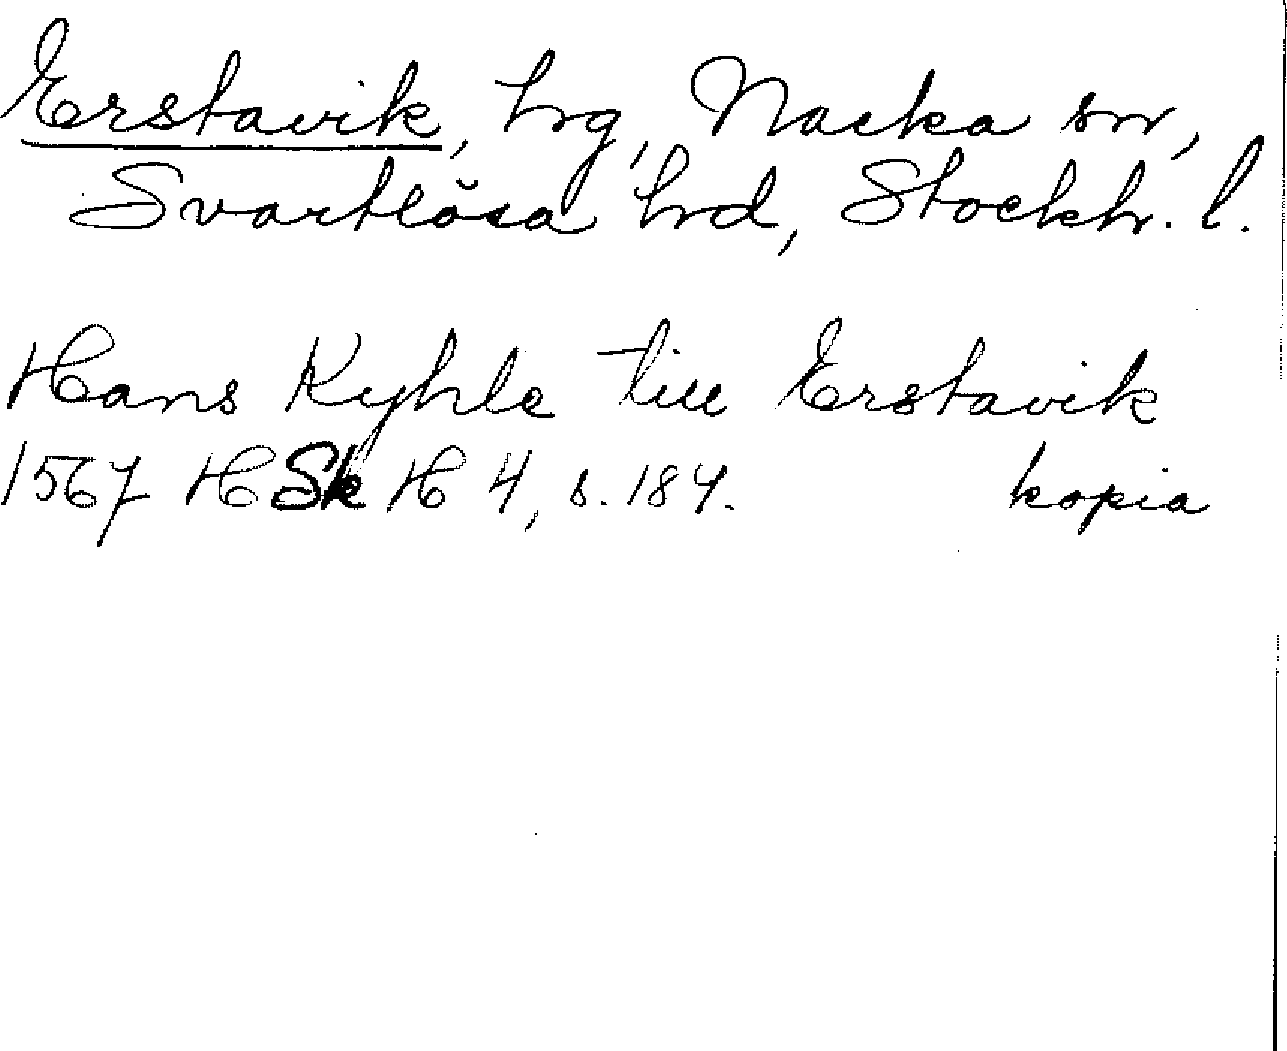 Erstavik, hrg, Nacka sn,
Svartlösa hrd, Stockh. l.
Hans Kyhle till Erstavik
1567 HSk H 4, s. 184. kopia